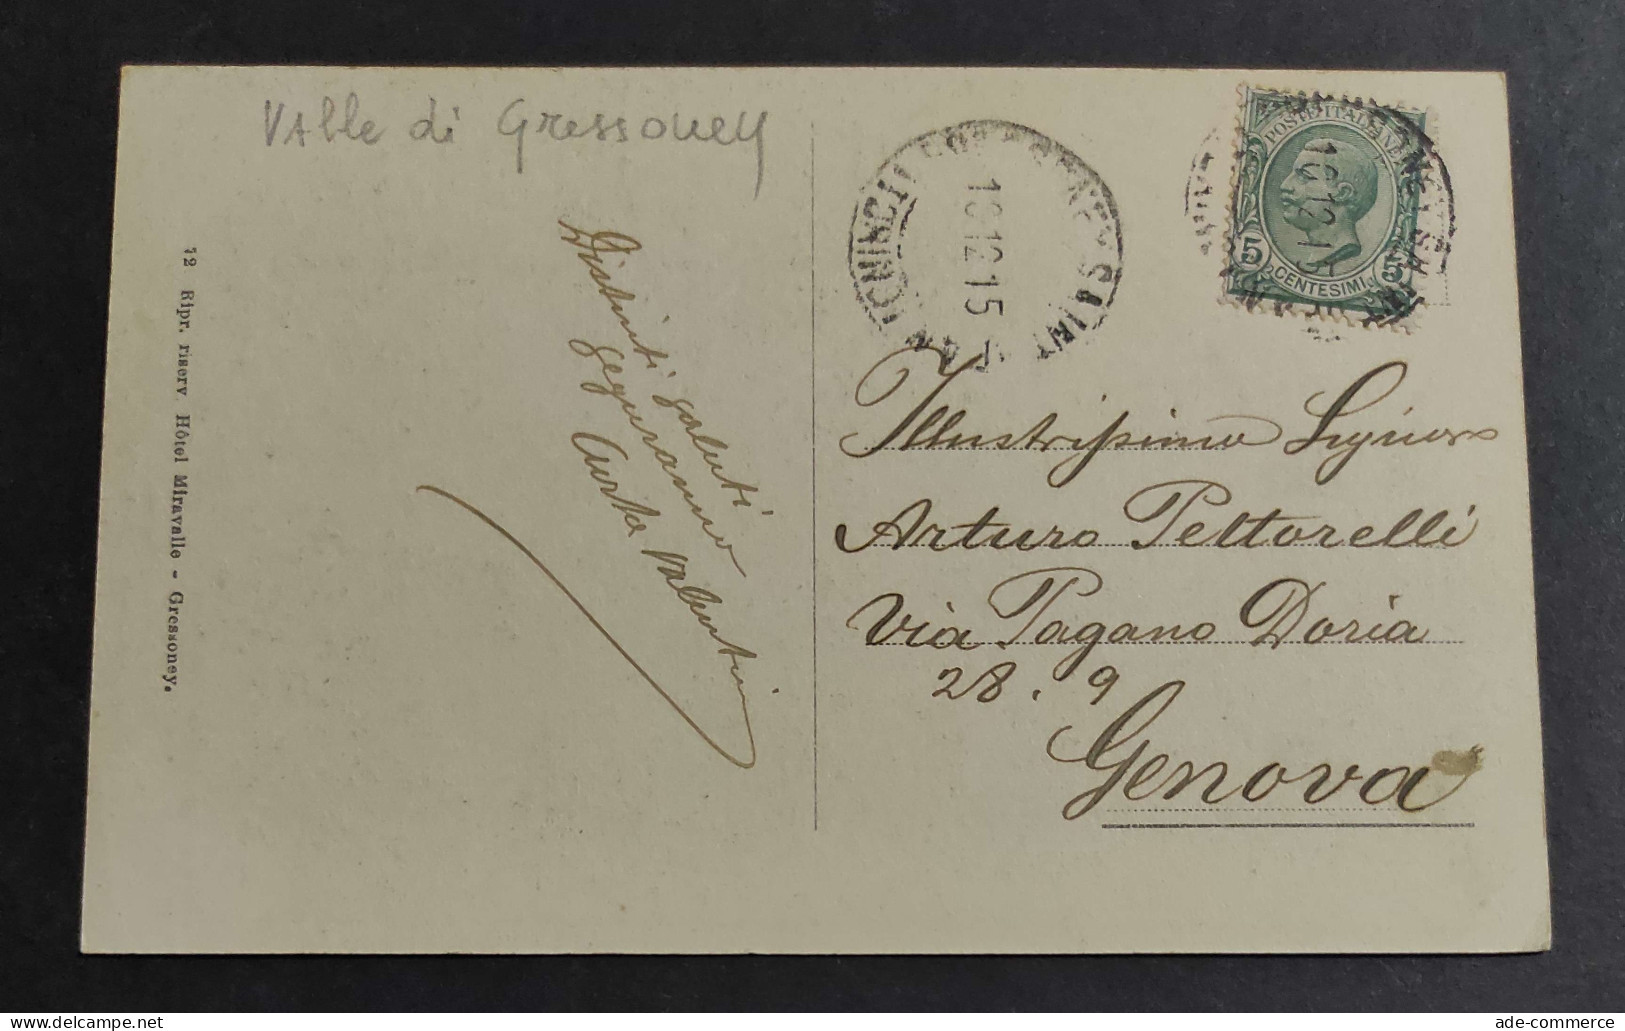 Valle di Gressoney
72 Ripr. riserv. Hôtel Miravalle - Gressoney.
Distinti saluti
Valentini
16.12.15
POSTE ITALIANE
16.12.15
5 CENTESIMI
Illustrissimo Signor
Arturo Pettorelli
Via Pagano Doria
28.9
Genova
ade-commerce